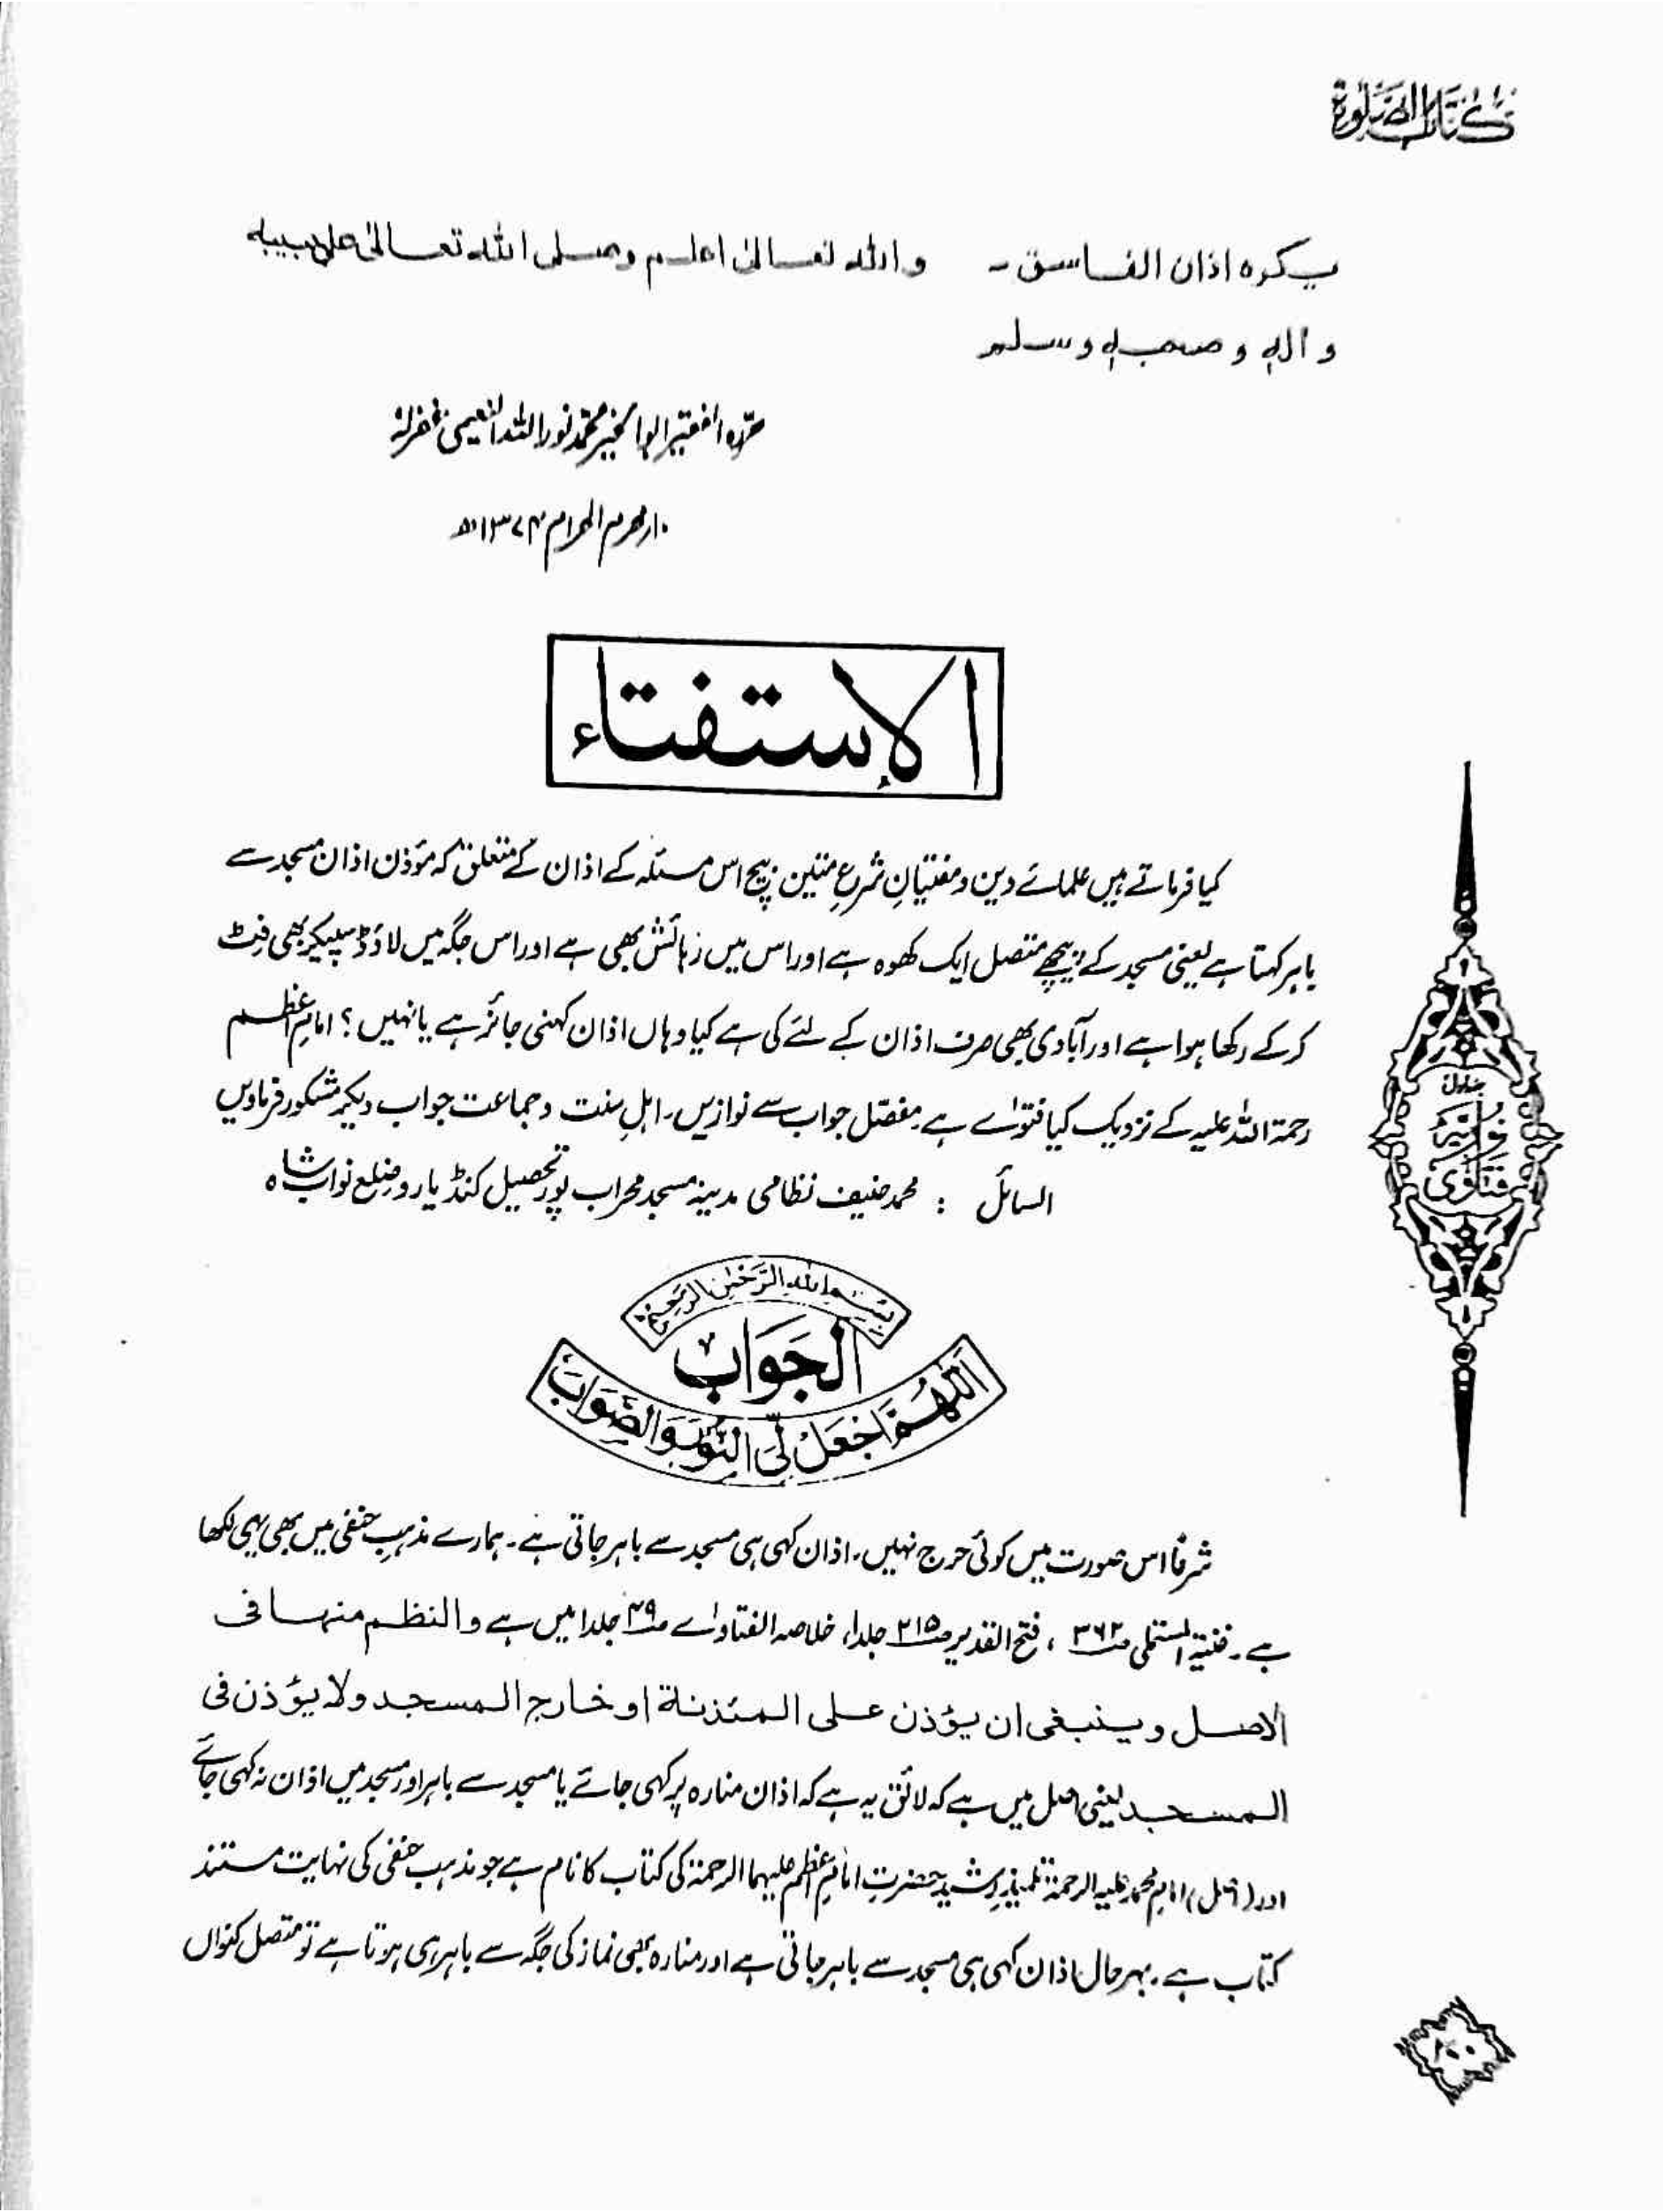 کتاب الصلوٰة
یکرہ اذان الفاسق۔ واللہ تعالیٰ اعلم وصلی اللہ تعالیٰ علیٰ حبیبہ
و اٰلہٖ و صحبہٖ وسلم
حررہ الفقیر ابوالخیر محمد نور اللہ النعیمی غفرلہٗ
۱۰؍محرم الحرام ۱۳۷۴ھ
الإستفتاء
کیا فرماتے ہیں علمائے دین و مفتیانِ شرعِ متین بیچ اس مسئلہ کے اذان کے متعلق کہ مؤذن اذان مسجد سے
باہر کہتا ہے یعنی مسجد کے پیچھے متصل ایک کھوہ ہے اور اس میں رہائش بھی ہے اور اس جگہ میں لاؤڈ سپیکر بھی فِٹ
کرکے رکھا ہوا ہے اور آبادی بھی صرف اذان کے لئے کی ہے کیا وہاں اذان کہنی جائز ہے یا نہیں؟ امامِ اعظم
رحمۃ اللہ علیہ کے نزدیک کیا فتوٰے ہے۔ مفصّل جواب سے نوازیں۔ اہلِ سنت وجماعت جواب دیکر مشکور فرماویں
السائل : محمد حنیف نظامی مدینہ مسجد محراب پور تحصیل کنڈیارو ضلع نواب شاہ
جلد اول
فتاوٰی نوریہ
بسم اللہ الرحمٰن الرحیم
الجواب
اَللّٰهُمَّ اجْعَلْ لِّیَ النُّوْرَ وَالصَّوَابَ
شرعًا اس صورت میں کوئی حرج نہیں۔ اذان کہی ہی مسجد سے باہر جاتی ہے۔ ہمارے مذہبِ حنفی میں بھی یہی لکھا
ہے۔ غنیۃ المستملی صـ۳۶۲ ، فتح القدیر صـ۲۱۵ جلد۱، خلاصہ الفتاوٰے صـ۴۹ جلد۱ میں ہے والنظم منہا فی
الاصل وینبغی ان یؤذن علی المئذنۃ او خارج المسجد ولا یؤذن فی
المسجد یعنی اصل میں ہے کہ لائق یہ ہے کہ اذان منارہ پر کہی جائے یا مسجد سے باہر اور مسجد میں اذان نہ کہی جائے
اور (اصل) امام محمد علیہ الرحمۃ تلمیذِ رشیدِ حضرتِ امامِ اعظم علیہما الرحمۃ کی کتاب کا نام ہے جو مذہبِ حنفی کی نہایت مستند
کتاب ہے۔ بہرحال اذان کہی ہی مسجد سے باہر جاتی ہے اور منارہ بھی نماز کی جگہ سے باہر ہی ہوتا ہے تو متصل کنواں